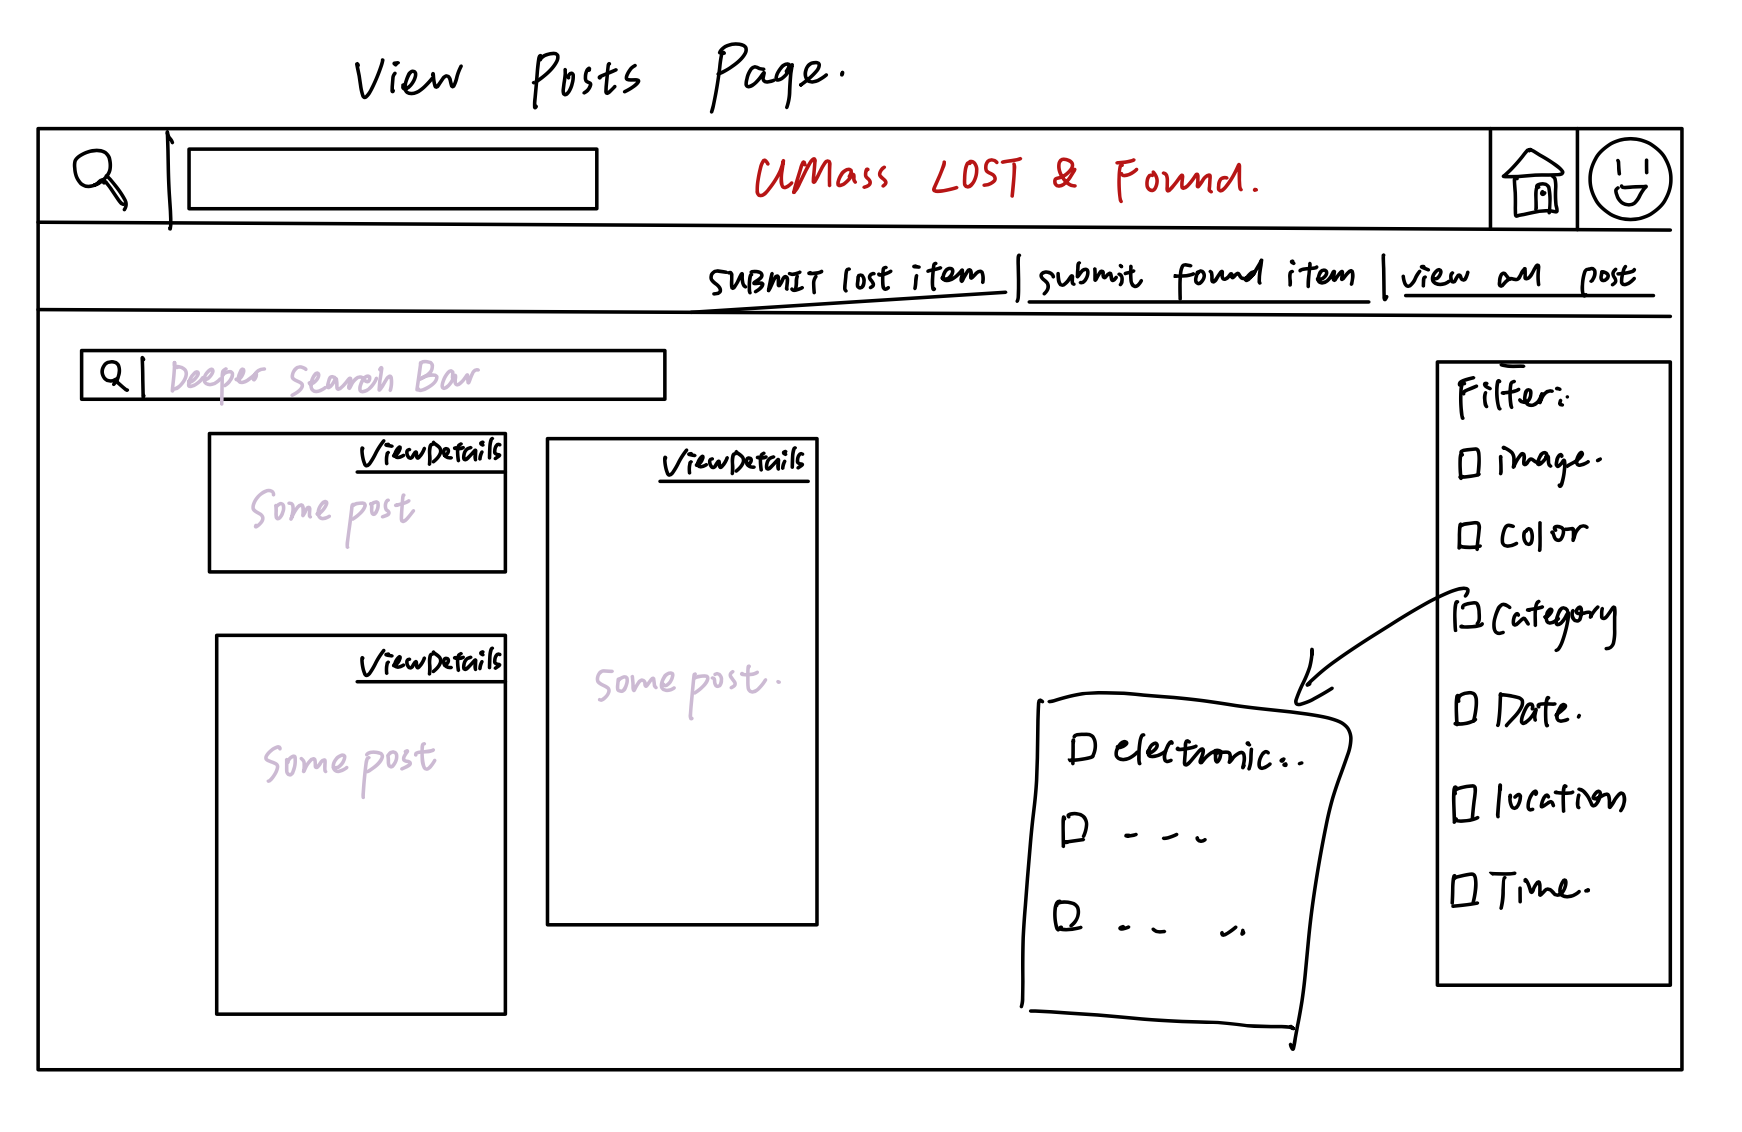 View Posts Page.
UMass LOST & Found.
SUBMIT lost item | submit found item | view all post
Deeper Search Bar
View Details
Some post
View Details
Some post.
View Details
Some post
Filter:
image.
Color
Category
Date.
location
Time.
electronic...
- - -
- - ..